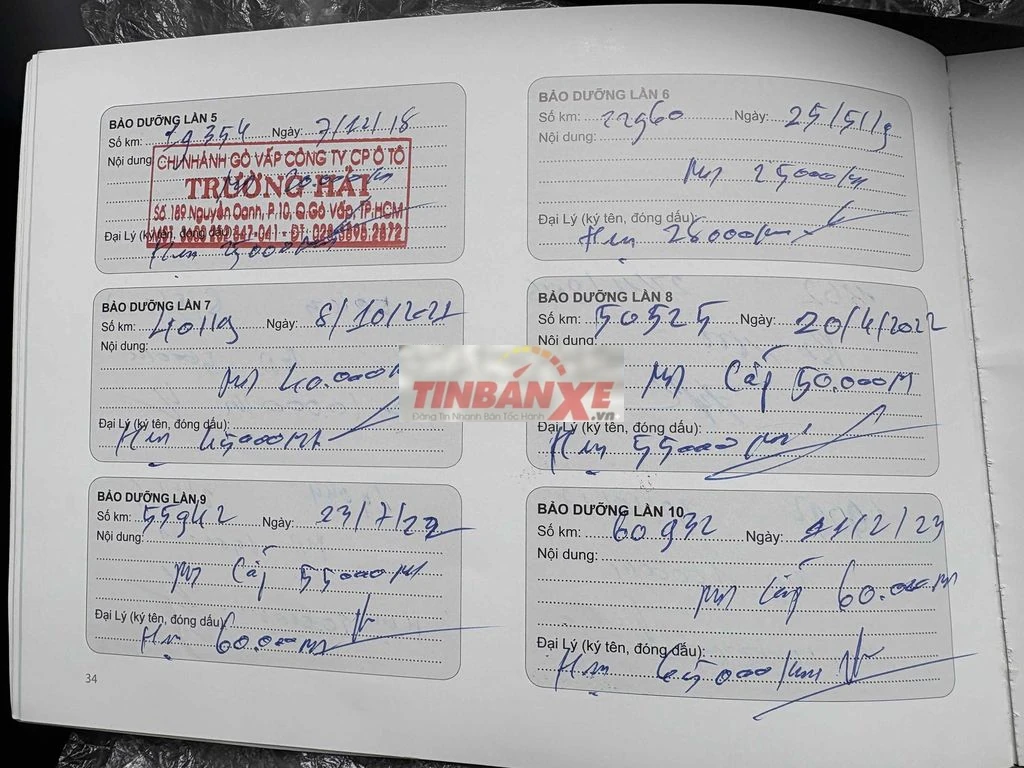 BẢO DƯỠNG LẦN 5
Số km: 19354 Ngày: 7/12/18
Nội dung
CHI NHÁNH GÒ VẤP CÔNG TY CP Ô TÔ
TRƯỜNG HẢI
20.000km
Số 189 Nguyễn Oanh, P.10, Q.Gò Vấp, TP.HCM
Đại Lý (ký tên, đóng dấu)
ĐT: 028.3895.2872
Hẹn 25000km
BẢO DƯỠNG LẦN 6
Số km: 22960 Ngày: 25/5/19
Nội dung:
25000km
Đại Lý (ký tên, đóng dấu):
Hẹn 28000km
BẢO DƯỠNG LẦN 7
Số km: 40119 Ngày: 8/10/2021
Nội dung:
40.000km
Đại Lý (ký tên, đóng dấu):
Hẹn 45000km
BẢO DƯỠNG LẦN 8
Số km: 50525 Ngày: 20/4/2022
Nội dung:
Cấp 50.000km
Đại Lý (ký tên, đóng dấu):
Hẹn 55000km
TINBANXE.vn
Đăng Tin Nhanh Bán Tốc Hành
BẢO DƯỠNG LẦN 9
Số km: 55942 Ngày: 23/7/22
Nội dung:
Cấp 55000km
Đại Lý (ký tên, đóng dấu):
Hẹn 60.000km
BẢO DƯỠNG LẦN 10
Số km: 60932 Ngày: 11/2/23
Nội dung:
Cấp 60.000km
Đại Lý (ký tên, đóng dấu):
Hẹn 65000/km
34